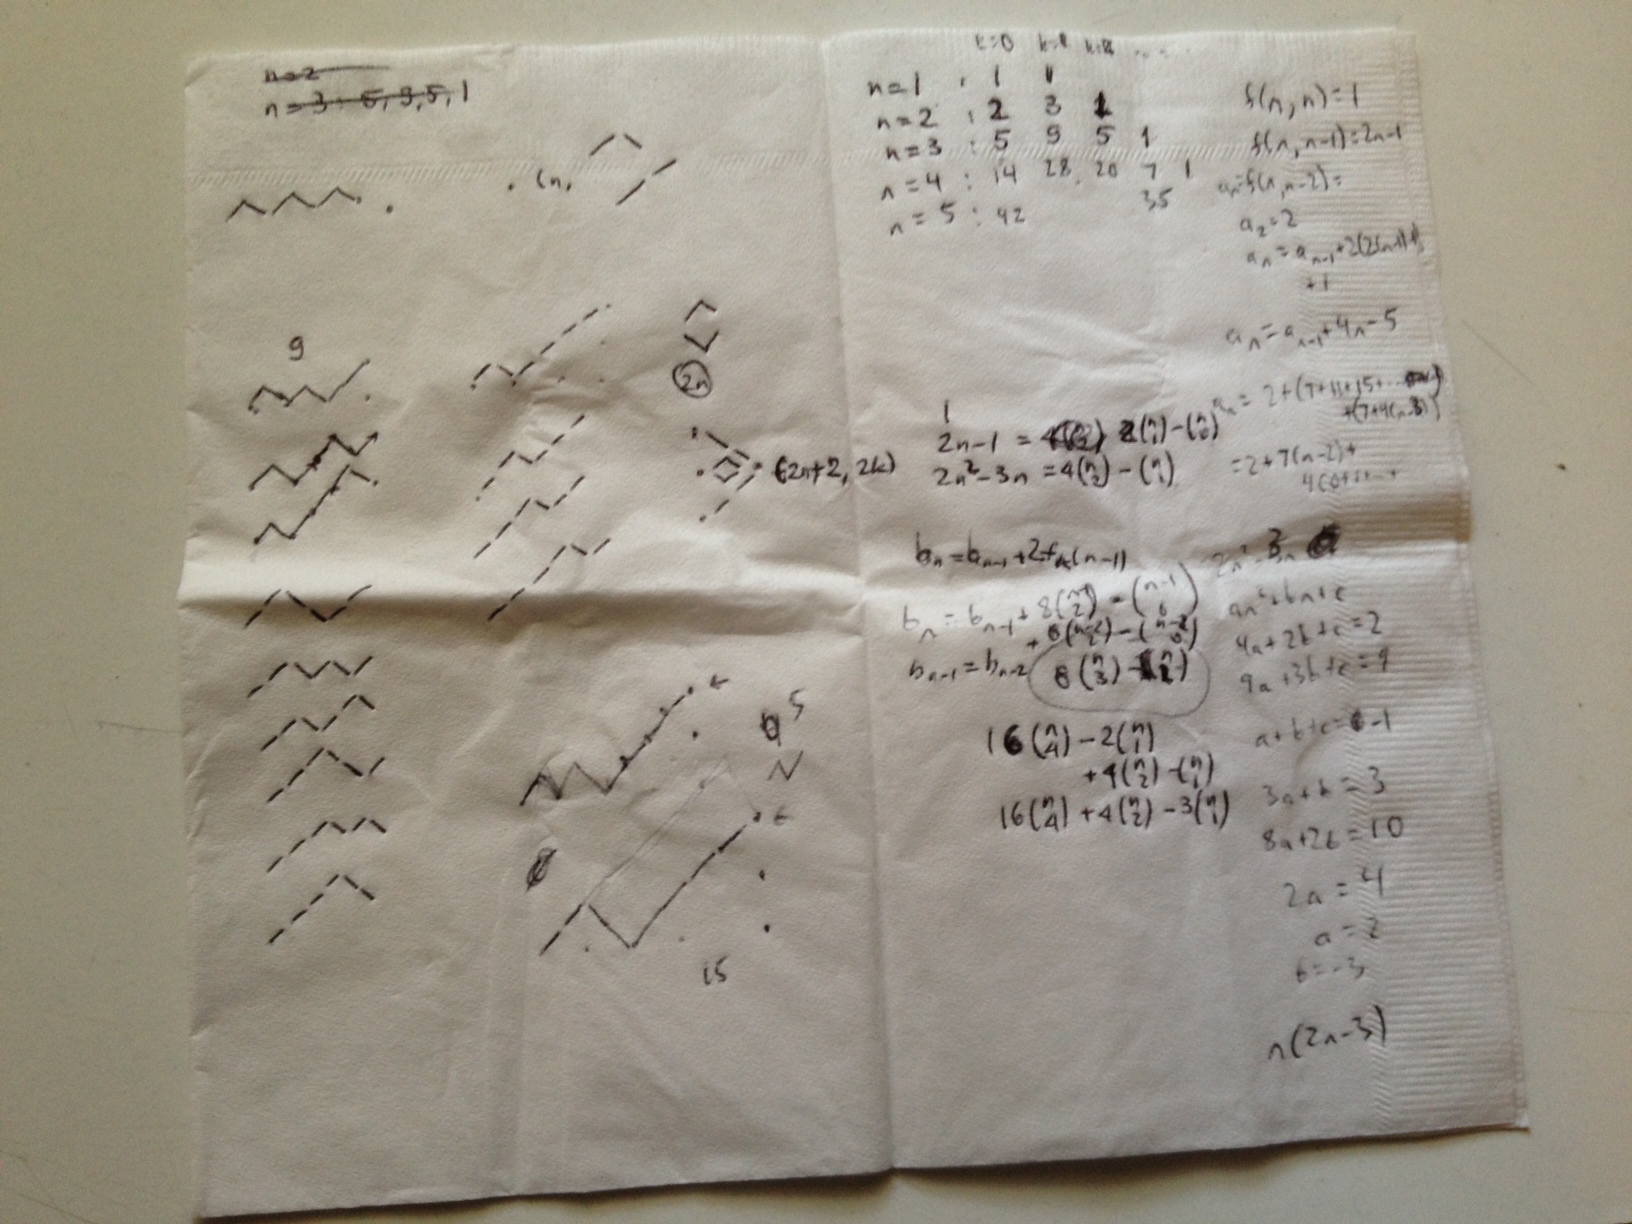 n=2
n=3: 5, 9, 5, 1
(n,
9
2n
(2n+2, 2k)
5
15
k=0
n=1 : 1 1
n=2 : 2 3 1
n=3 : 5 9 5 1
n=4 : 14 28 20 7 1
n=5 : 42 35
f(n,n)=1
f(n,n-1)=2n-1
aₙ=f(n,n-2)=
a₂=2
aₙ=aₙ₋₁+2(2(n-1)-1)
+1
aₙ=aₙ₋₁+4n-5
aₙ=2+(7+11+15+...
+(7+4(n-3))
=2+7(n-2)+
4(0+1+...+
1
2n-1 = 2(n 1)-(n 0)
2n²-3n =4(n 2)-(n 1)
bₙ=bₙ₋₁+2
(n-1)
bₙ=bₙ₋₁+8(n-1 2)-(n-1 0)
bₙ₋₁=bₙ₋₂
8(n 3)
16(n 4)-2(n 1)
+4(n 2)-(n 1)
16(n 4)+4(n 2)-3(n 1)
2n²-3n
an²+bn+c
4a+2b+c=2
9a+3b+c=9
a+b+c=-1
3a+b=3
8a+2b=10
2a=4
a=2
b=-3
n(2n-3)